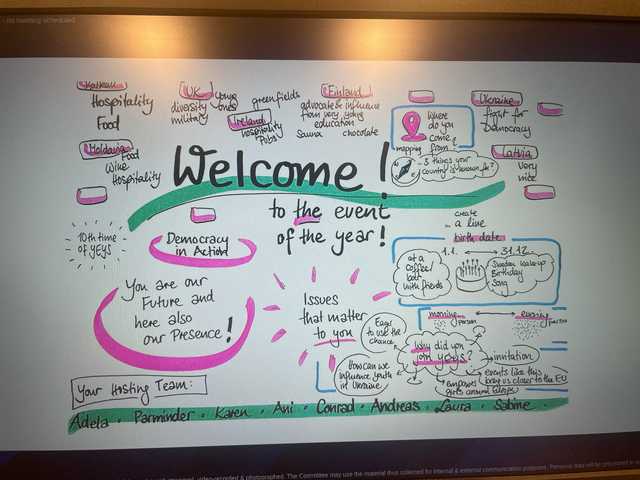 no meeting scheduled
Hospitality
Food
UK
young ones
diversity
military
green fields
Ireland
hospitality
Pubs
Finland
advocate & influence
from very young
education
sauna
chocolate
Where
do you
come
from?
mapping
3 things your
country is known for?
Ukraine
fight for
Democracy
Latvia
very
nice
Moldova
Food
Wine
Hospitality
Welcome!
to the event
of the year!
10th time
of YEYS
Democracy
in Action
You are our
Future and
here also
our Presence!
Issues
that matter
to you
create
a line
birth date
1.1.
31.12.
at a
Coffee/
bar
with friends
Sweden wake-up
Birthday
Song
morning
person
evening
person
Easy
to use the
chance
Why did you
join YEYS?
invitation
How can we
influence youth
in Ukraine
events like this
bring us closer to the EU
empower
girls around Europe
Your Hosting Team:
Adela · Parminder · Karen · Ani · Conrad · Andreas · Laura · Sabine
video-recorded & photographed. The Committee may use the material thus collected for internal & external communication purposes. Personal data will be processed in